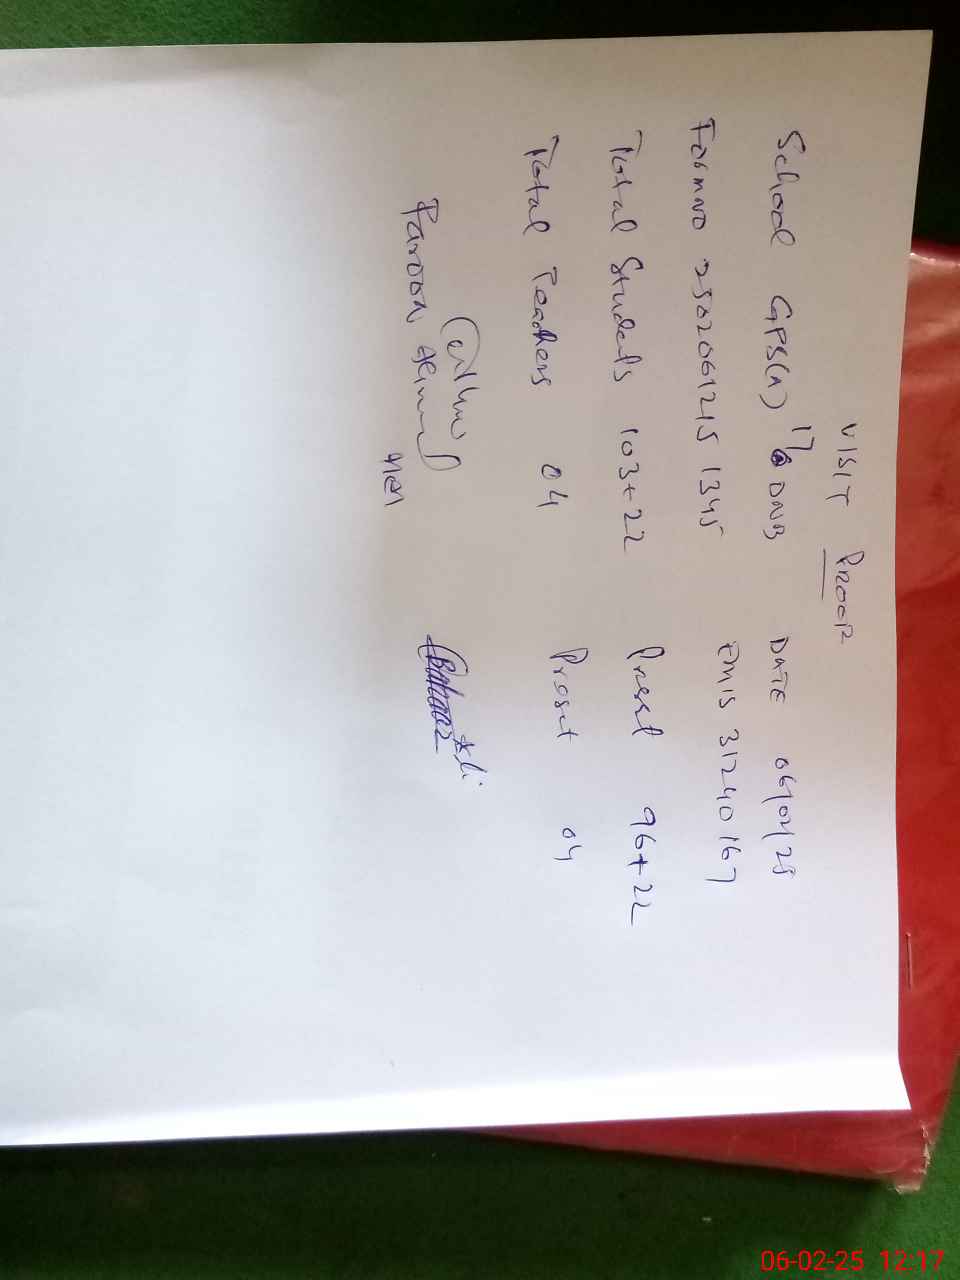 VISIT PROOF
School GPS(N) 17 DNB DATE 06/02/25
Formno 250206121513 45 EMIS 31240167
Total Students 103+22 Present 96+22
Total Teachers 04 Present 04
06-02-25 12:17